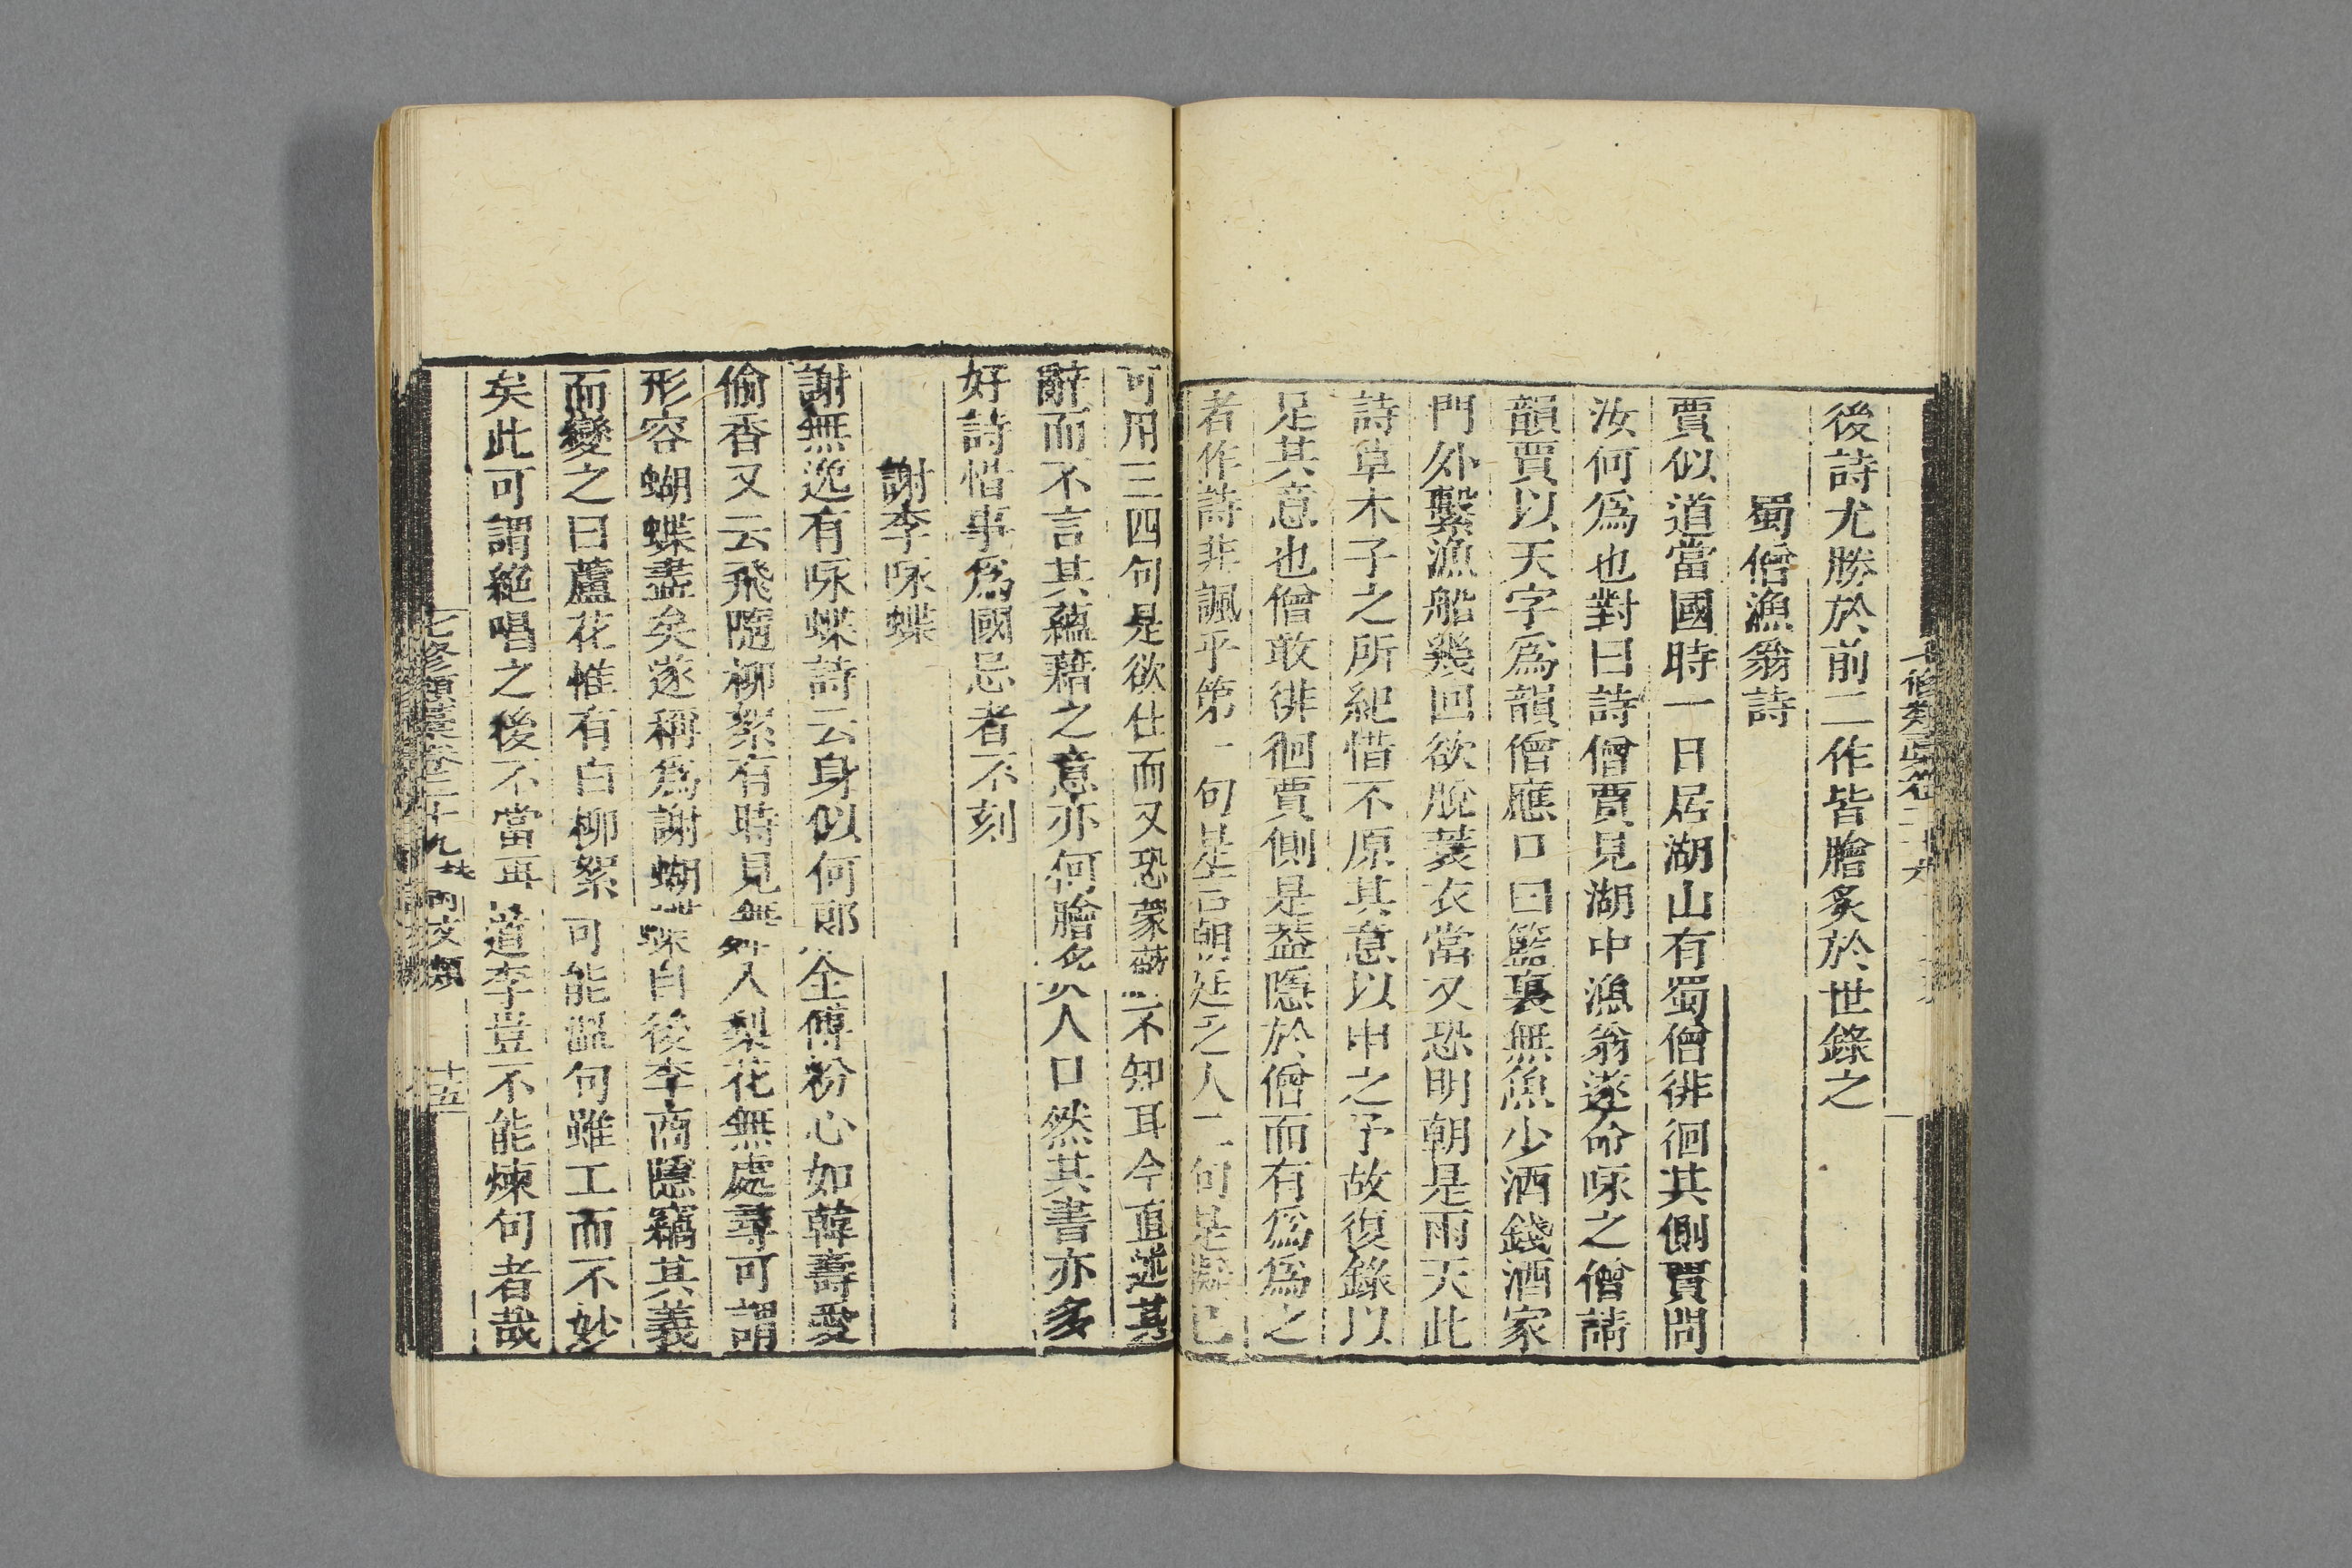 後詩尤勝於前二作皆膾炙於世錄之
蜀僧漁翁詩
賈似道當國時一日居湖山有蜀僧徘徊其側賈問
汝何爲也對曰詩僧賈見湖中漁翁遂命咏之僧請
韻賈以天字爲韻僧應口曰籃裏無魚少酒錢酒家
門外繫漁船幾回欲脫蓑衣當又恐明朝是雨天此
詩草木子之所紀惜不原其意以申之予故復錄以
足其意也僧敢徘徊賈側是葢隱於僧而有爲爲之
者作詩非諷乎第一句是言朝廷乏人二句是疑已
可用三四句是欲仕而又恐蒙不知耳今直述其
辭而不言其蘊藉之意亦何膾炙人口然其書亦多
好詩惜事爲國忌者不刻
謝李咏蝶
謝無逸有咏蝶詩云身似何郎全傅粉心如韓壽愛
偷香又云飛隨柳絮有時見舞入梨花無處尋可謂
形容蝴蝶盡矣遂稱爲謝蝴蝶自後李商隱竊其義
而變之曰蘆花惟有白柳絮可能溫句雖工而不妙
矣此可謂絕唱之後不當再道李豈不能煉句者哉
七修類藁卷三十九 詩文類 十五